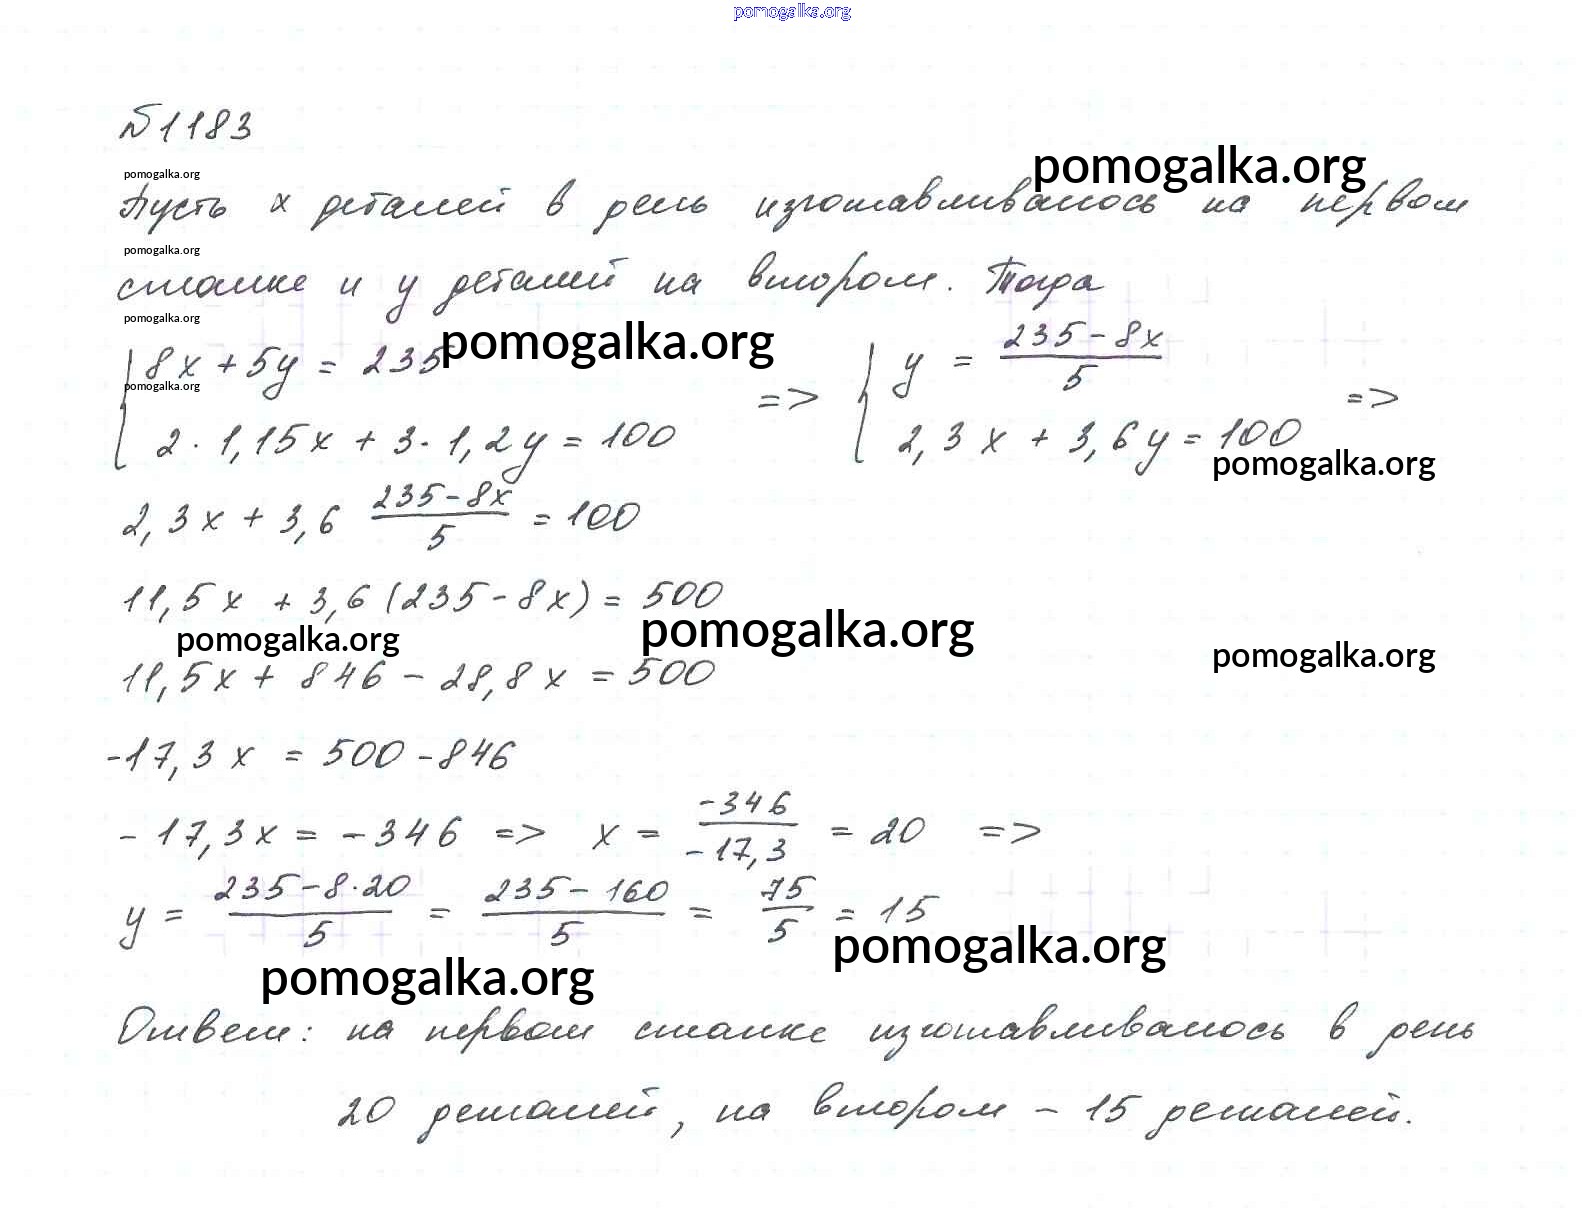 pomogalka.org
№1183
pomogalka.org
pomogalka.org
Пусть x деталей в день изготавливалось на первом
pomogalka.org
станке и y деталей на втором. Тогда
pomogalka.org
pomogalka.org
{ 8x + 5y = 235
2 · 1,15x + 3 · 1,2y = 100 => { y = (235 - 8x)/5
2,3x + 3,6y = 100 =>
pomogalka.org
pomogalka.org
2,3x + 3,6 (235 - 8x)/5 = 100
11,5x + 3,6(235 - 8x) = 500
pomogalka.org
pomogalka.org
pomogalka.org
11,5x + 846 - 28,8x = 500
-17,3x = 500 - 846
-17,3x = -346 => x = -346/-17,3 = 20 =>
y = (235 - 8·20)/5 = (235 - 160)/5 = 75/5 = 15
pomogalka.org
pomogalka.org
Ответ: на первом станке изготавливалось в день
20 деталей, на втором - 15 деталей.